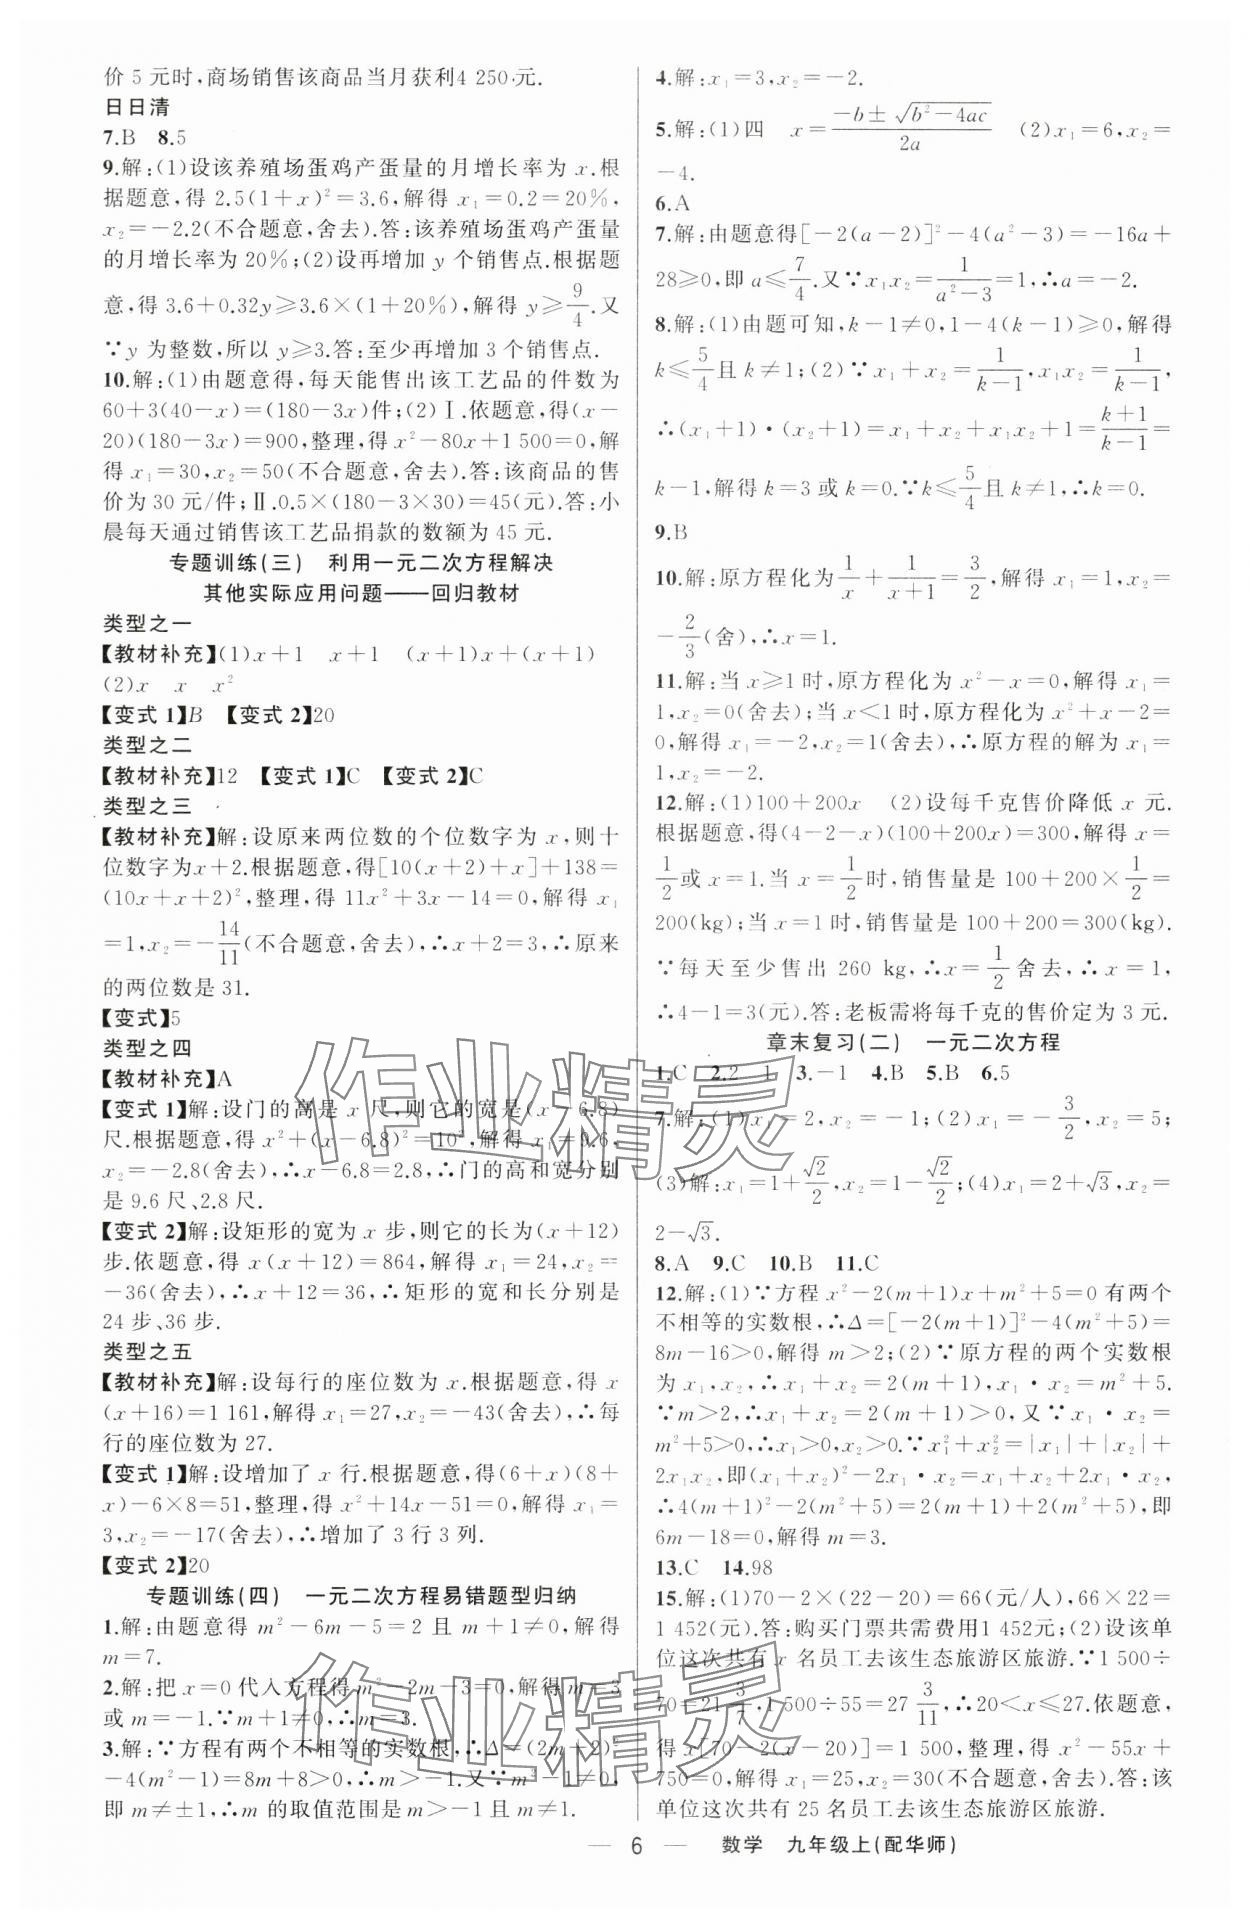 价 5 元时,商场销售该商品当月获利4 250 元.
日日清
7.B 8.5
9.解:(1)设该养殖场蛋鸡产蛋量的月增长率为 x.根
据题意,得 2.5(1+x)²=3.6,解得 x₁=0.2=20%,
x₂=-2.2(不合题意,舍去).答:该养殖场蛋鸡产蛋量
的月增长率为 20%;(2)设再增加 y 个销售点.根据题
意,得 3.6+0.32y≥3.6×(1+20%),解得 y≥9/4.又
∵y 为整数,所以 y≥3.答:至少再增加 3 个销售点.
10.解:(1)由题意得,每天能售出该工艺品的件数为
60+3(40-x)=(180-3x)件;(2)Ⅰ.依题意,得(x-
20)(180-3x)=900,整理,得 x²-80x+1 500=0,解
得 x₁=30,x₂=50(不合题意,舍去).答:该商品的售
价为 30 元/件;Ⅱ.0.5×(180-3×30)=45(元).答:小
晨每天通过销售该工艺品捐款的数额为 45 元.
专题训练(三) 利用一元二次方程解决
其他实际应用问题——回归教材
类型之一
【教材补充】(1)x+1 x+1 (x+1)x+(x+1)
(2)x x x²
【变式 1】B 【变式 2】20
类型之二
【教材补充】12 【变式 1】C 【变式 2】C
类型之三
【教材补充】解:设原来两位数的个位数字为 x,则十
位数字为x+2.根据题意,得[10(x+2)+x]+138=
(10x+x+2)²,整理,得 11x²+3x-14=0,解得 x₁
=1,x₂=-14/11(不合题意,舍去),∴x+2=3,∴原来
的两位数是 31.
【变式】5
类型之四
【教材补充】A
【变式 1】解:设门的高是 x 尺,则它的宽是(x-6.8)
尺.根据题意,得 x²+(x-6.8)²=10²,解得 x₁=9.6,
x₂=-2.8(舍去),∴x-6.8=2.8,∴门的高和宽分别
是 9.6 尺、2.8 尺.
【变式 2】解:设矩形的宽为 x 步,则它的长为(x+12)
步.依题意,得 x(x+12)=864,解得 x₁=24,x₂=
-36(舍去),∴x+12=36,∴矩形的宽和长分别是
24 步、36 步.
类型之五
【教材补充】解:设每行的座位数为 x.根据题意,得 x
(x+16)=1 161,解得 x₁=27,x₂=-43(舍去),∴每
行的座位数为 27.
【变式 1】解:设增加了 x 行.根据题意,得(6+x)(8+
x)-6×8=51,整理,得 x²+14x-51=0,解得 x₁=
3,x₂=-17(舍去),∴增加了 3 行 3 列.
【变式 2】20
专题训练(四) 一元二次方程易错题型归纳
1.解:由题意得 m²-6m-5=2 且 m+1≠0,解得
m=7.
2.解:把 x=0 代入方程得 m²-2m-3=0,解得 m=3
或 m=-1.∵m+1≠0,∴m=3.
3.解:∵方程有两个不相等的实数根,∴Δ=(2m+2)²
-4(m²-1)=8m+8>0,∴m>-1.又∵m²-1≠0,
即 m≠±1,∴m 的取值范围是 m>-1且 m≠1.
4.解:x₁=3,x₂=-2.
5.解:(1)四 x=(-b±√(b²-4ac))/2a (2)x₁=6,x₂=
-4.
6.A
7.解:由题意得[-2(a-2)]²-4(a²-3)=-16a+
28≥0,即 a≤7/4.又∵x₁x₂=1/(a²-3)=1,∴a=-2.
8.解:(1)由题可知,k-1≠0,1-4(k-1)≥0,解得
k≤5/4且 k≠1;(2)∵x₁+x₂=1/(k-1),x₁x₂=1/(k-1),
∴(x₁+1)·(x₂+1)=x₁+x₂+x₁x₂+1=(k+1)/(k-1)=
k-1,解得 k=3 或 k=0.∵k≤5/4且 k≠1,∴k=0.
9.B
10.解:原方程化为1/x+1/(x+1)=3/2,解得 x₁=1,x₂=
-2/3(舍),∴x=1.
11.解:当 x≥1 时,原方程化为 x²-x=0,解得 x₁=
1,x₂=0(舍去);当 x<1 时,原方程化为 x²+x-2=
0,解得 x₁=-2,x₂=1(舍去),∴原方程的解为 x₁=
1,x₂=-2.
12.解:(1)100+200x (2)设每千克售价降低 x 元.
根据题意,得(4-2-x)(100+200x)=300,解得 x=
1/2或 x=1.当 x=1/2时,销售量是 100+200×1/2=
200(kg);当 x=1 时,销售量是 100+200=300(kg).
∵每天至少售出 260 kg,∴x=1/2舍去,∴x=1,
∴4-1=3(元).答:老板需将每千克的售价定为 3 元.
章末复习(二) 一元二次方程
1.C 2.2 1 3.-1 4.B 5.B 6.5
7.解:(1)x₁=2,x₂=-1;(2)x₁=-3/2,x₂=5;
(3)解:x₁=1+√2/2,x₂=1-√2/2;(4)x₁=2+√3,x₂=
2-√3.
8.A 9.C 10.B 11.C
12.解:(1)∵方程 x²-2(m+1)x+m²+5=0 有两个
不相等的实数根,∴Δ=[-2(m+1)]²-4(m²+5)=
8m-16>0,解得 m>2;(2)∵原方程的两个实数根
为 x₁,x₂,∴x₁+x₂=2(m+1),x₁·x₂=m²+5.
∵m>2,∴x₁+x₂=2(m+1)>0,又∵x₁·x₂=
m²+5>0,∴x₁>0,x₂>0.∵x₁²+x₂²=|x₁|+|x₂|+
2x₁x₂,即(x₁+x₂)²-2x₁·x₂=x₁+x₂+2x₁·x₂,
∴4(m+1)²-2(m²+5)=2(m+1)+2(m²+5),即
6m-18=0,解得 m=3.
13.C 14.98
15.解:(1)70-2×(22-20)=66(元/人),66×22=
1 452(元).答:购买门票共需费用1 452元;(2)设该单
位这次共有 x 名员工去该生态旅游区旅游.∵1 500÷
70=21 3/7,1 500÷55=27 3/11,∴20<x≤27.依题意,
得 x[70-2(x-20)]=1 500,整理,得 x²-55x+
750=0,解得 x₁=25,x₂=30(不合题意,舍去).答:该
单位这次共有 25 名员工去该生态旅游区旅游.
— 6 — 数学 九年级上(配华师)
作业精灵
作业精灵